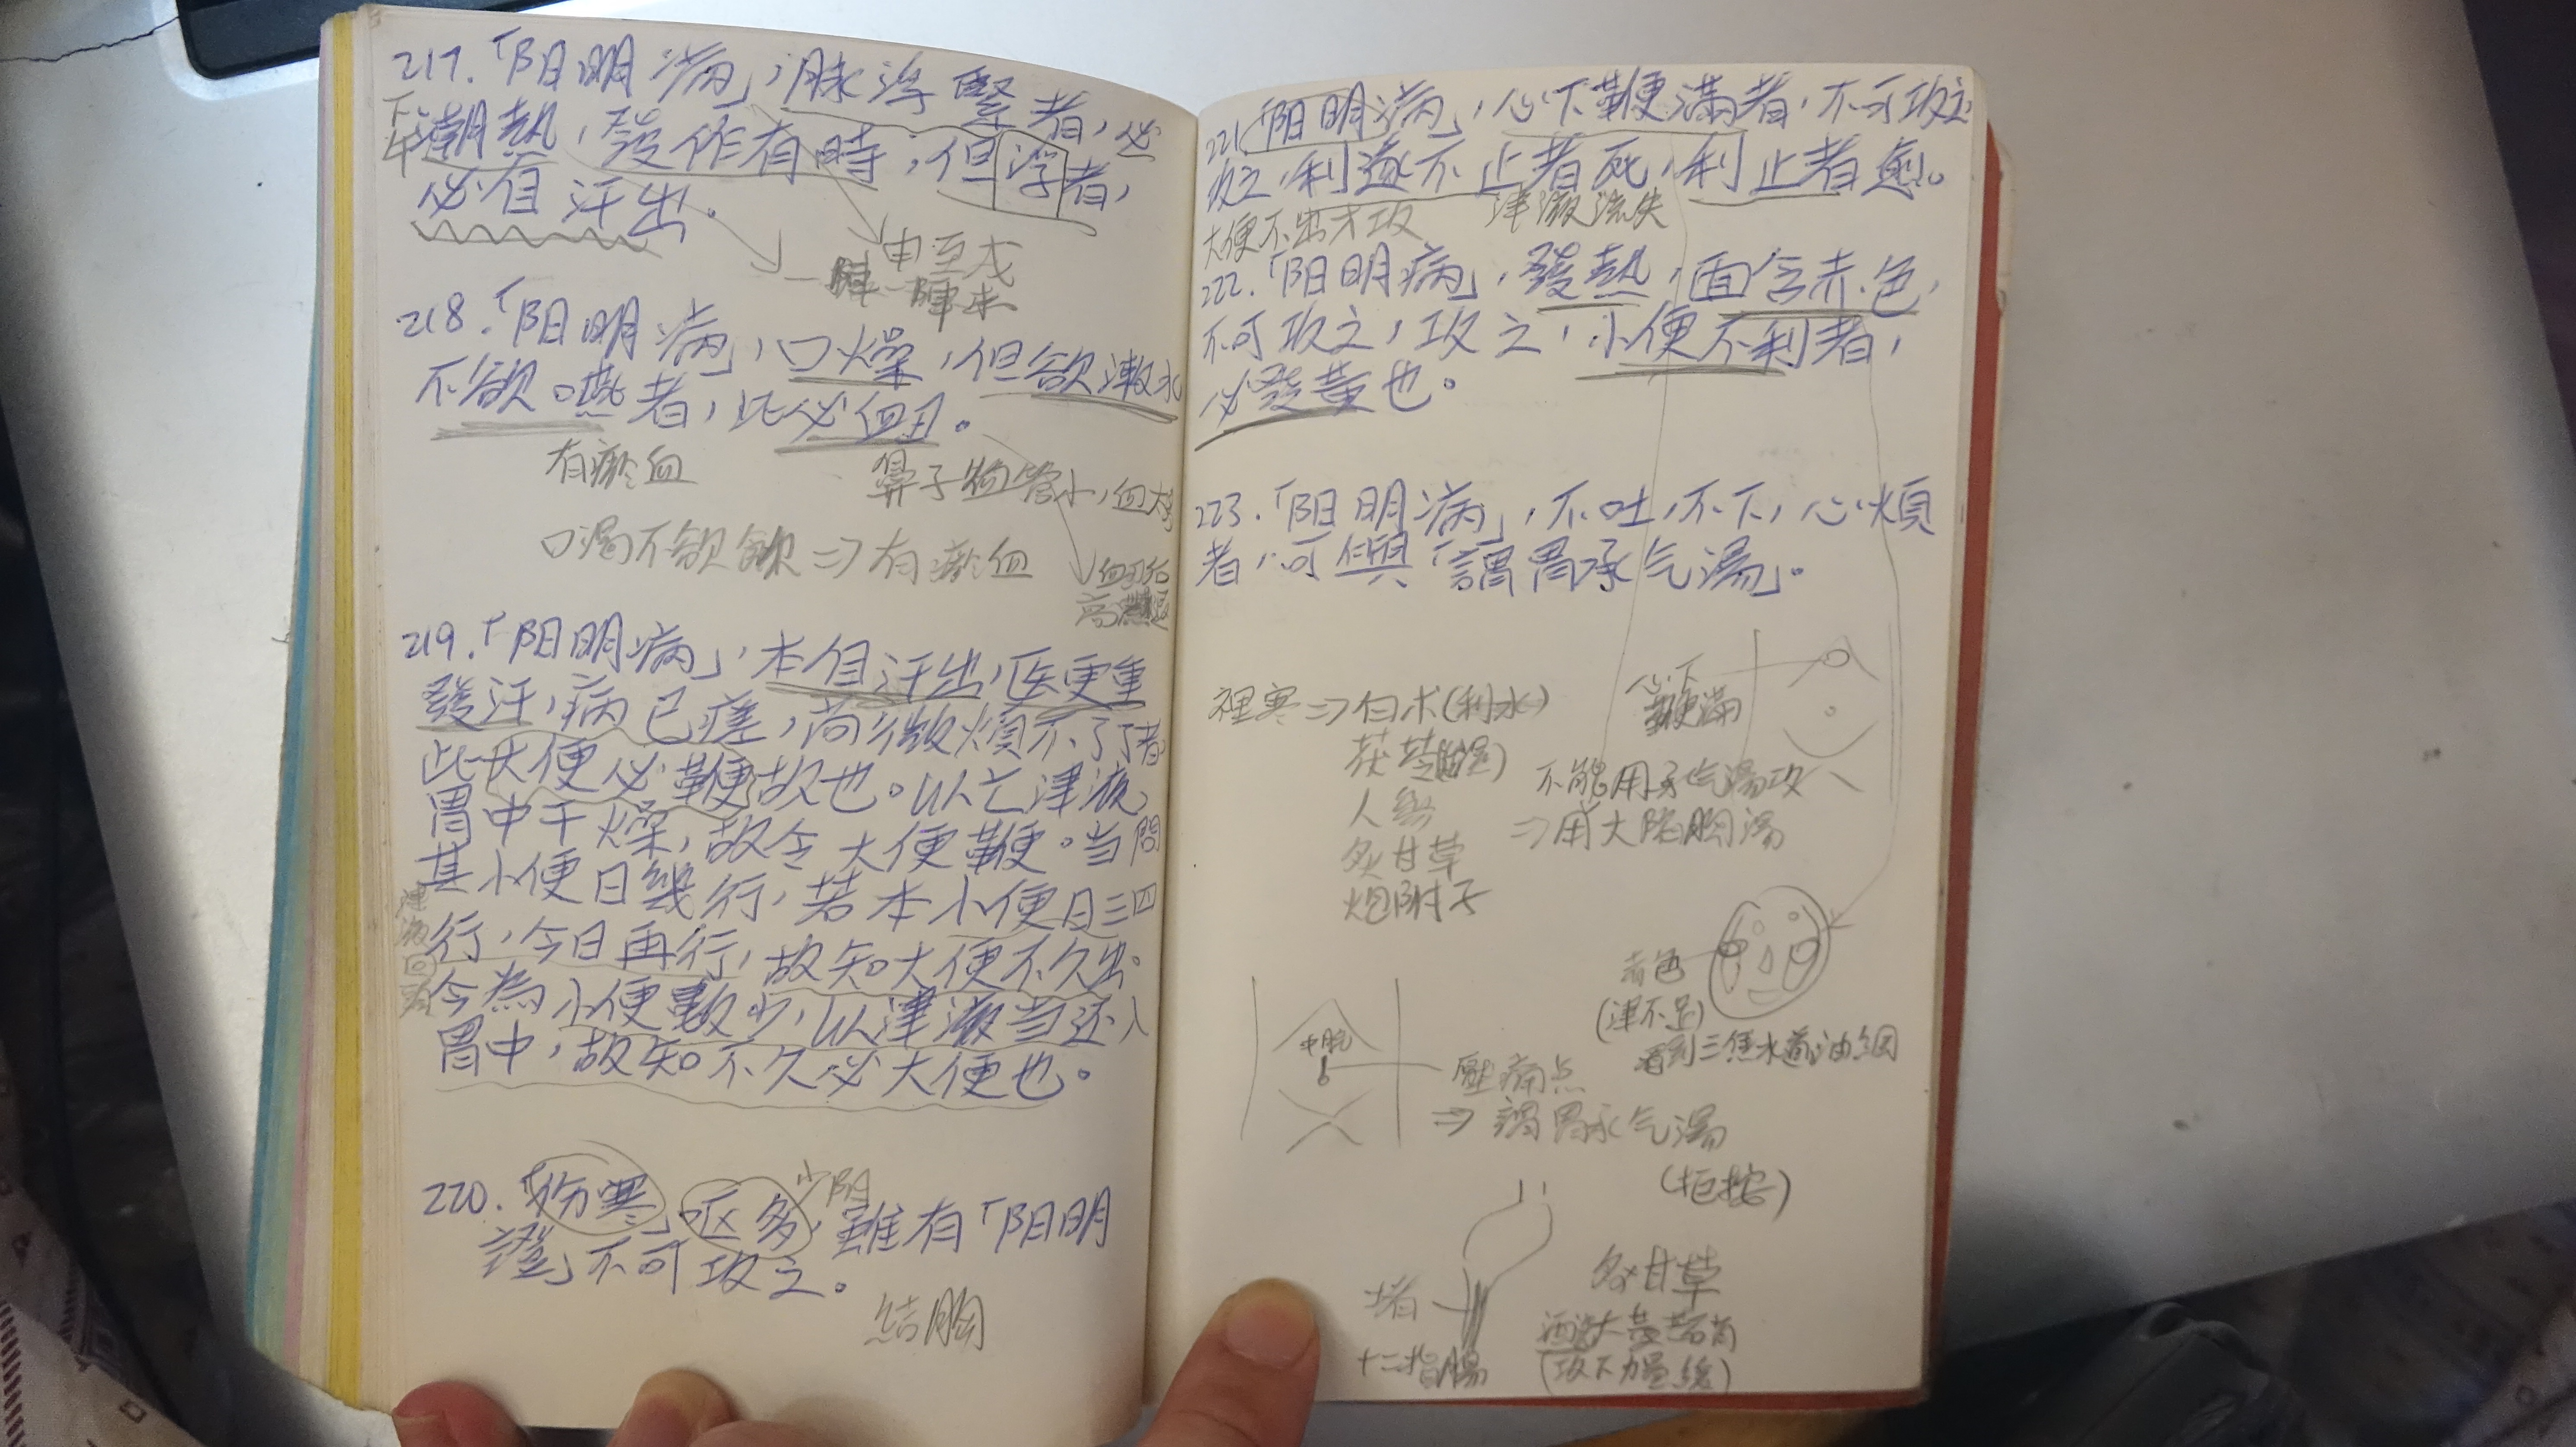 217.「阳明病」,脉浮緊者,必
下午
潮熱,發作有時;但浮者,
必有汗出。
申至戌
一陣一陣来
218.「阳明病」,口燥,但欲漱水
不欲嚥者,此必衄。
有瘀血
鼻子血管小,血大
口渴不欲飲⇒有瘀血
血衄后
高熱退
219.「阳明病」,本自汗出,医更重
發汗,病已瘥,尚微煩不了了者
此大便必鞭故也。以亡津液,
胃中干燥,故令大便鞭。当問
其小便日幾行,若本小便日三四
行,今日再行,故知大便不久出。
津液回胃
今為小便數少,以津液当还入
胃中,故知不久必大便也。
220.「伤寒」呕多,雖有「阳明
少阳
證」不可攻之。
結胸
221.「阳明病」,心下鞭滿者,不可攻之
攻之,利遂不止者死,利止者愈。
大便不出才攻
津液流失
222.「阳明病」,發熱,面含赤色,
不可攻之,攻之,小便不利者,
必發黃也。
223.「阳明病」,不吐,不下,心煩
者,可與「謂胃承气湯」。
心下
鞭滿
裡寒⇒白术(利水)
茯苓(祛湿)
人參
炙甘草
炮附子
不能用承气湯攻
⇒用大陷胸湯
赤色
(津不足)
看到三焦水道油網
中脘
壓痛点
⇒謂胃承气湯
(拒按)
堵
十二指腸
炙甘草
酒洗大黄芒硝
(攻下力量緩)